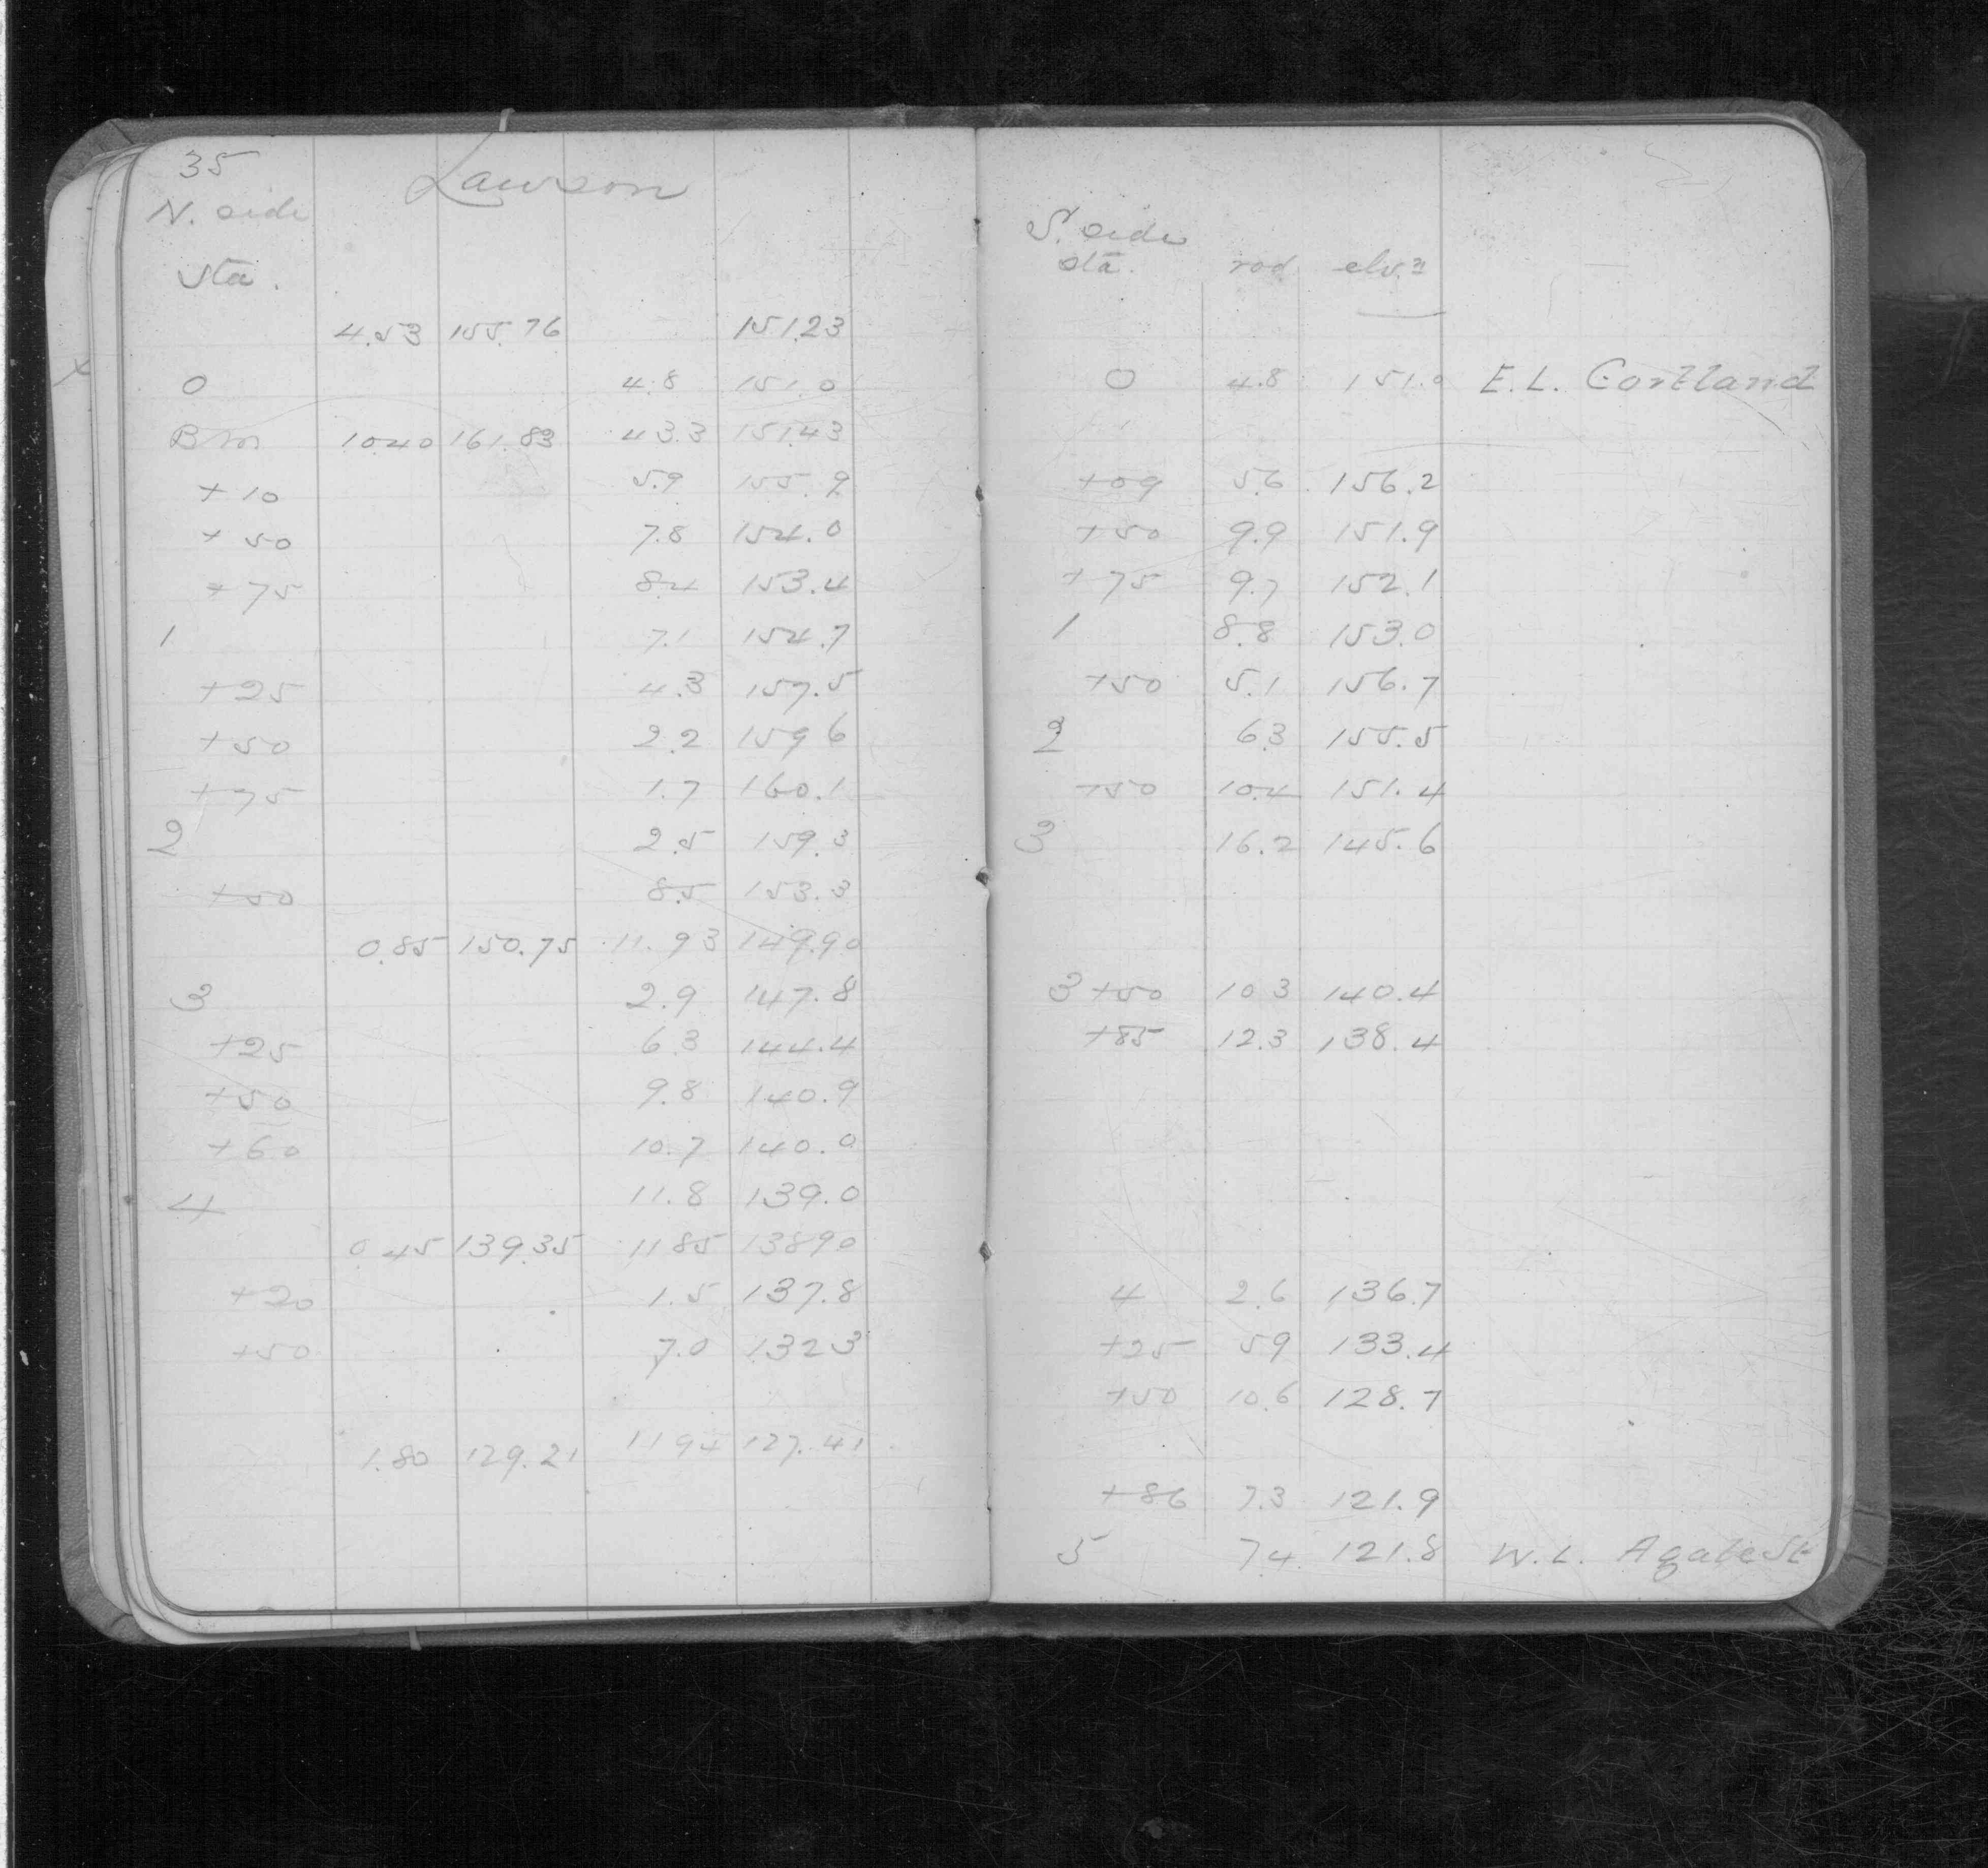 35
Lawson
N. side
Sta.
4.53 155.76 151.23
0 4.8 151.0
BM 10.40 161.83 4.33 151.43
+10 5.9 155.9
+50 7.8 154.0
+75 8.4 153.4
1 7.1 154.7
+25 4.3 157.5
+50 2.2 159.6
+75 1.7 160.1
2 2.5 159.3
+50 8.5 153.3
0.85 150.75 11.93 149.90
3 2.9 147.8
+25 6.3 144.4
+50 9.8 140.9
+60 10.7 140.0
4 11.8 139.0
0.45 139.35 11.85 138.90
+20 1.5 137.8
+50 7.0 132.3
1.80 129.21 11.94 127.41
S. side
sta. rod elv.n
0 4.8 151.0 E.L. Cortland
+09 5.6 156.2
+50 9.9 151.9
+75 9.7 152.1
1 8.8 153.0
+50 5.1 156.7
2 6.3 155.5
+50 10.4 151.4
3 16.2 145.6
3+50 10.3 140.4
+85 12.3 138.4
4 2.6 136.7
+25 5.9 133.4
+50 10.6 128.7
+86 7.3 121.9
5 7.4 121.8 W.L. Agate St